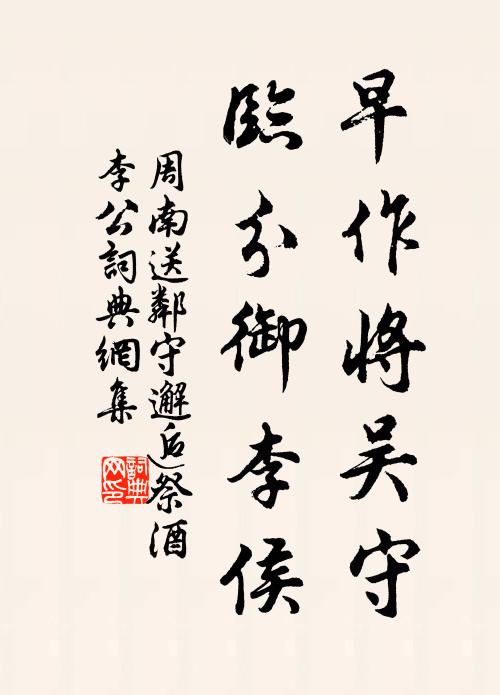 早作將吴守
臨分御李侯
周南送鄰守邂逅祭酒
李公詞典網集
詞典网印